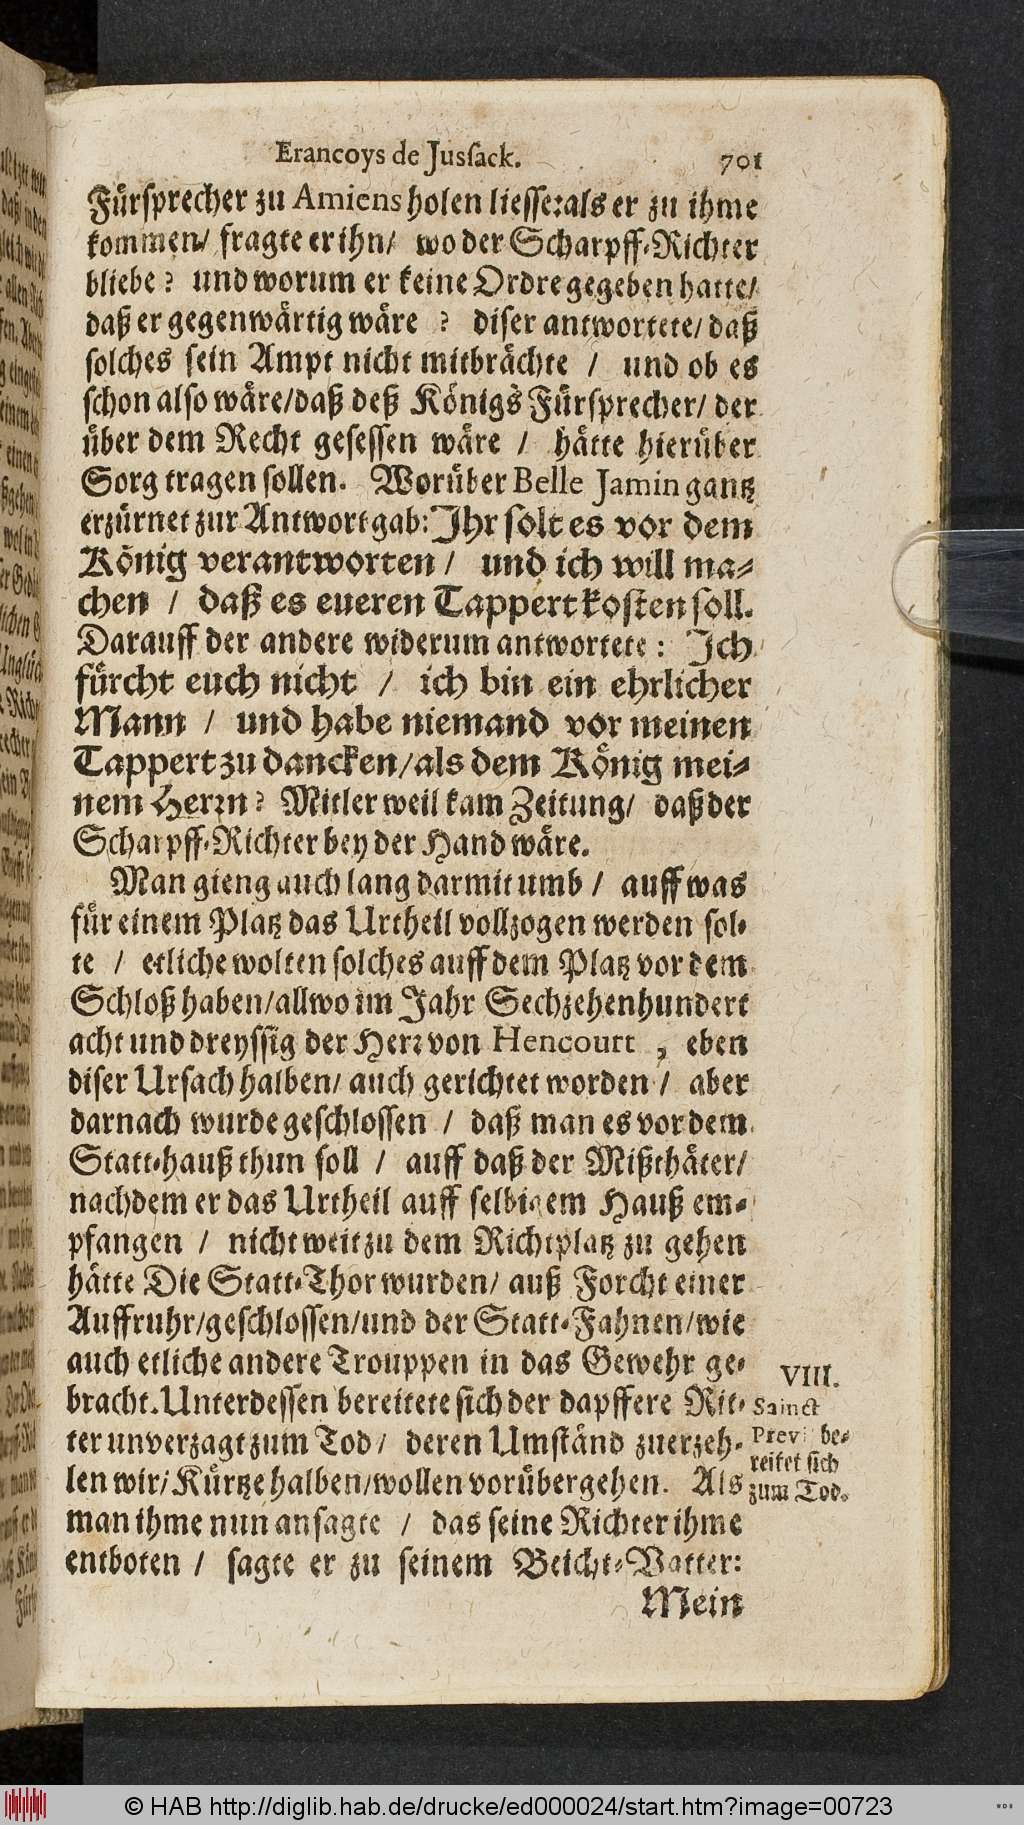 Erancoys de Jusſack. 701
Fürsprecher zu Amiens holen liesse: als er zu ihme
kommen/ fragte er ihn/ wo der Scharpff-Richter
bliebe? und worum er keine Ordre gegeben hatte/
daß er gegenwärtig wäre ? diser antwortete/ daß
solches sein Ampt nicht mitbrächte / und ob es
schon also wäre/daß deß Königs Fürsprecher/ der
über dem Recht gesessen wäre / hätte hierüber
Sorg tragen sollen. Worüber Belle Jamin gantz
erzürnet zur Antwort gab: Ihr solt es vor dem
König verantworten / und ich will ma-
chen / daß es eueren Tappert kosten soll.
Darauff der andere widerum antwortete: Ich
fürcht euch nicht / ich bin ein ehrlicher
Mann / und habe niemand vor meinen
Tappert zu dancken/als dem König mei-
nem Herrn? Mitler weil kam Zeitung/ daß der
Scharpff-Richter bey der Hand wäre.
Man gieng auch lang darmit umb / auff was
für einem Platz das Urtheil vollzogen werden sol-
te / etliche wolten solches auff dem Platz vor dem
Schloß haben/allwo im Jahr Sechzehenhundert
acht und dreyssig der Herr von Hencourt , eben
diser Ursach halben/ auch gerichtet worden / aber
darnach wurde geschlossen / daß man es vor dem
Statt-hauß thun soll / auff daß der Mißthäter/
nachdem er das Urtheil auff selbigem Hauß em-
pfangen / nicht weit zu dem Richtplatz zu gehen
hätte Die Statt-Thor wurden/ auß Forcht einer
Auffruhr/geschlossen/und der Statt-Fahnen/wie
auch etliche andere Trouppen in das Gewehr ge-
bracht. Unterdessen bereitete sich der dapffere Rit-
ter unverzagt zum Tod/ deren Umständ zuerzeh-
len wir/ Kürtze halben/wollen vorübergehen. Als
man ihme nun ansagte / das seine Richter ihme
entboten / sagte er zu seinem Beicht-Vatter:
Mein
VIII.
Sainct
Prevì be-
reitet sich
zum Tod.
© HAB http://diglib.hab.de/drucke/ed000024/start.htm?image=00723